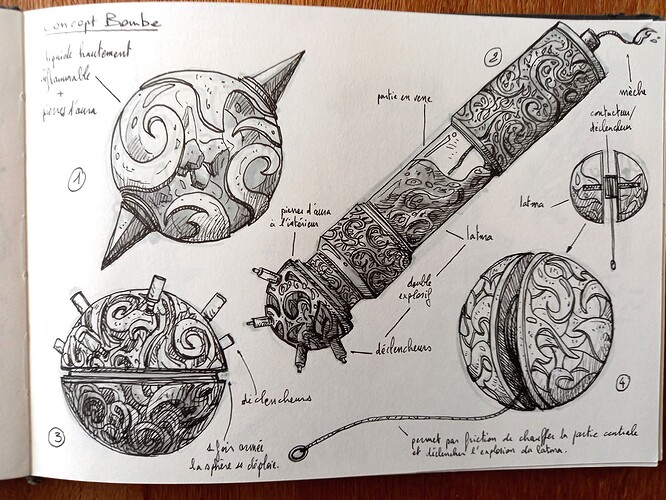 Concept Bombe
liquide hautement
inflammable
+
pierres d'aura
1
2
mèche
partie en verre
contacteur/
déclencheur
latma
pierres d'aura
à l'intérieur
latma
double
explosif
déclencheurs
3
déclencheurs
1 fois armée
la sphère se déploie.
4
permet par friction de chauffer la partie centrale
et déclencher l'explosion du latma.